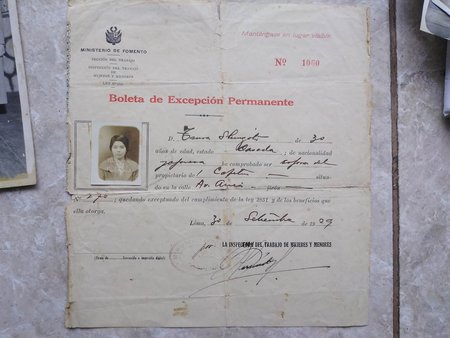 Manténgase en lugar visible
MINISTERIO DE FOMENTO
SECCIÓN DEL TRABAJO
INSPECCIÓN DEL TRABAJO
DE
MUJERES Y MENORES
Nº 1060
Boleta de Excepción Permanente
D. de 30
años de edad, estado Casada, de nacionalidad
japonesa ha comprobado ser esposa del
propietario de 1 Cafetin situa-
do en la calle Av.
Nº 270; quedando exceptuando del cumplimiento de la ley 2851 y de los beneficios que
ella otorga.
Lima, 30 Setiembre de 1929
por LA INSPECCIÓN DEL TRABAJO DE MUJERES Y MENORES